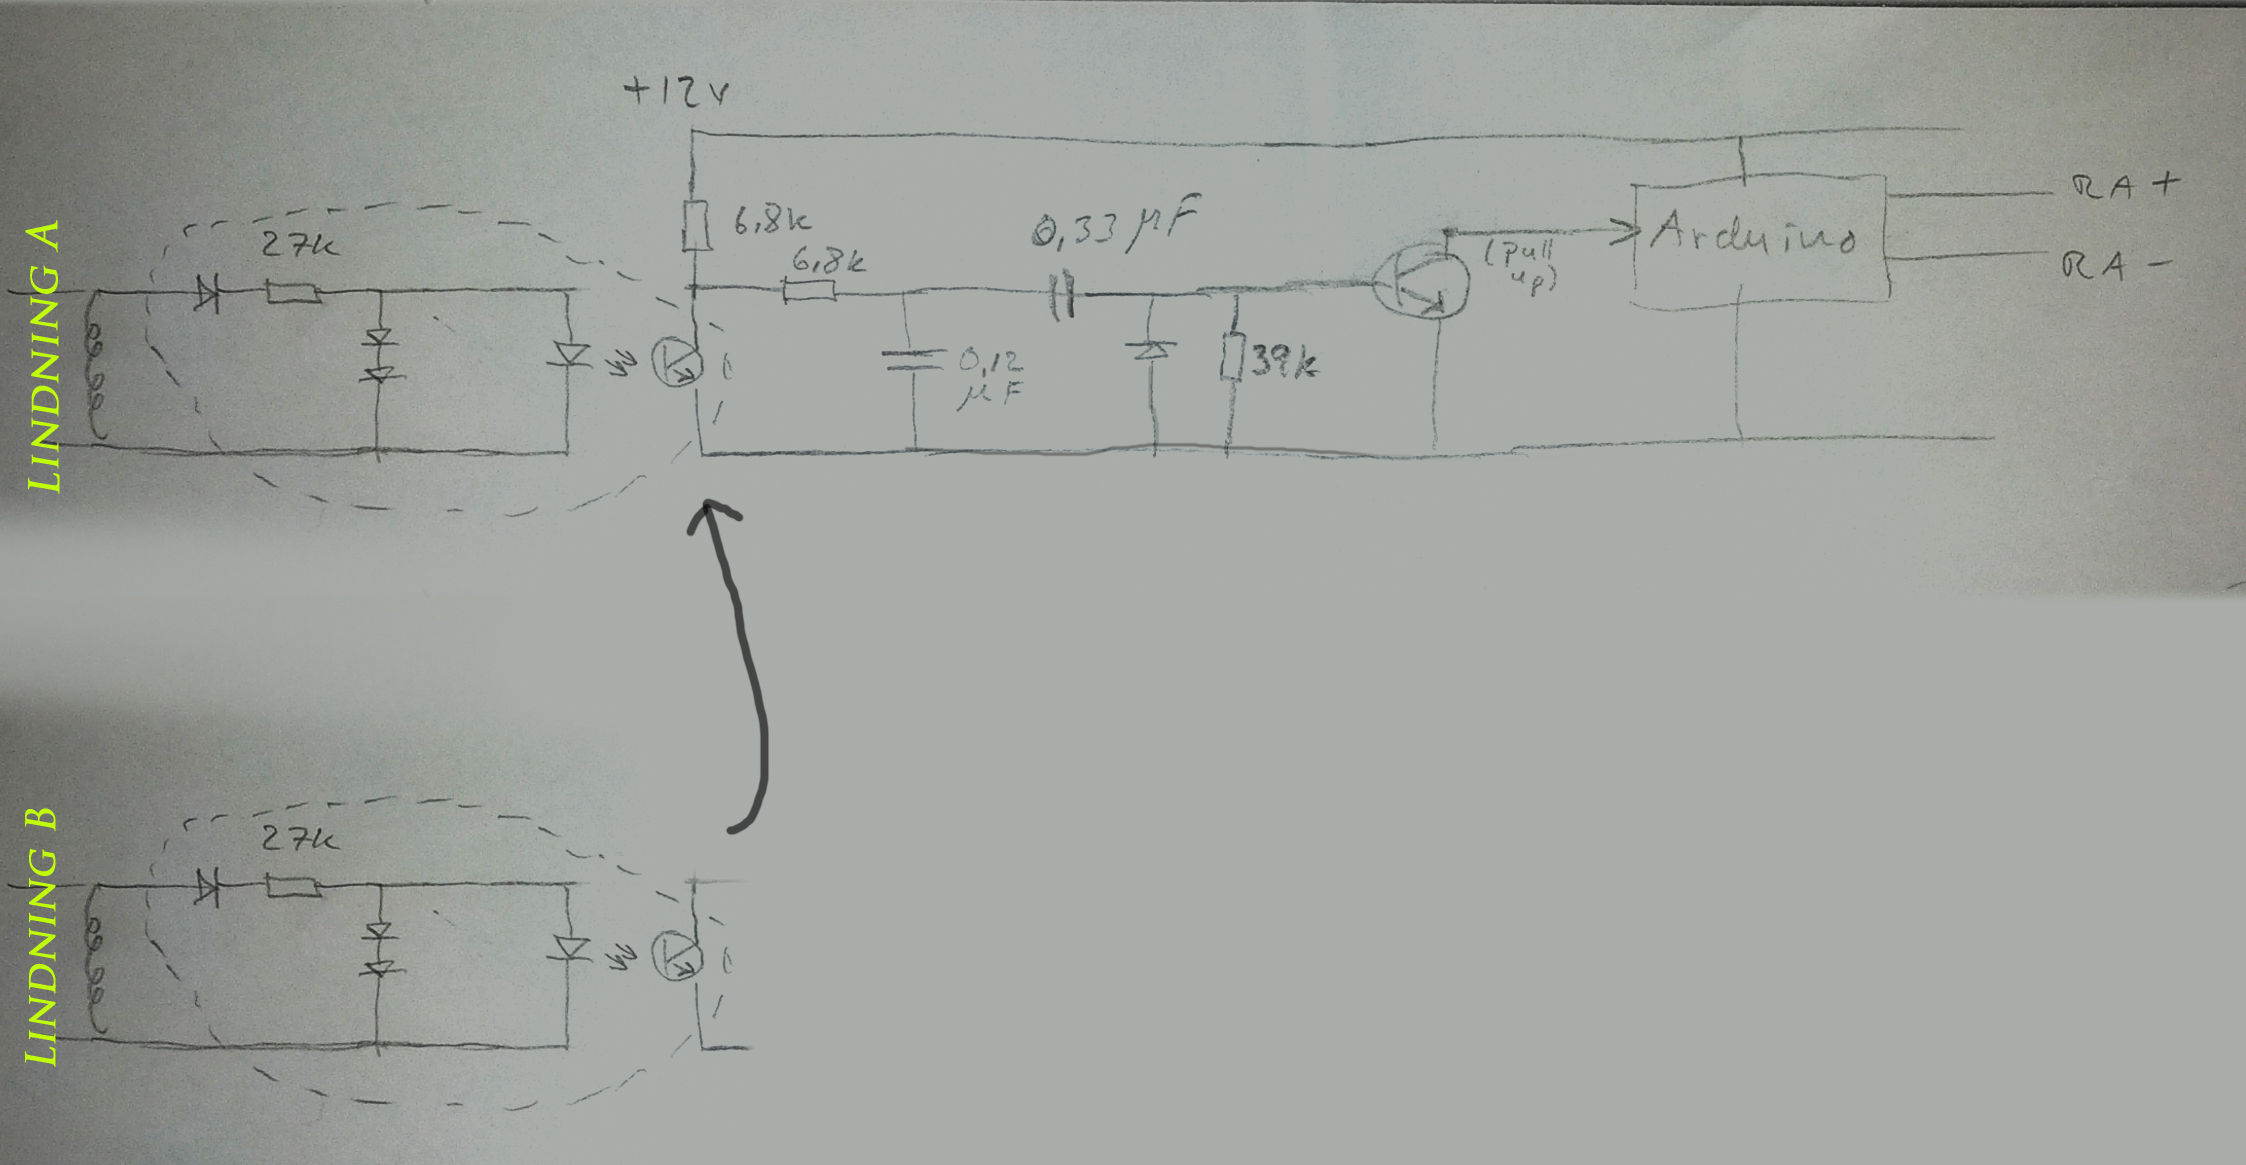 +12v
LINDNING A
27k
6,8k
6,8k
0,33 µF
0,12
µF
39k
(pull
up)
Arduino
RA +
RA -
LINDNING B
27k